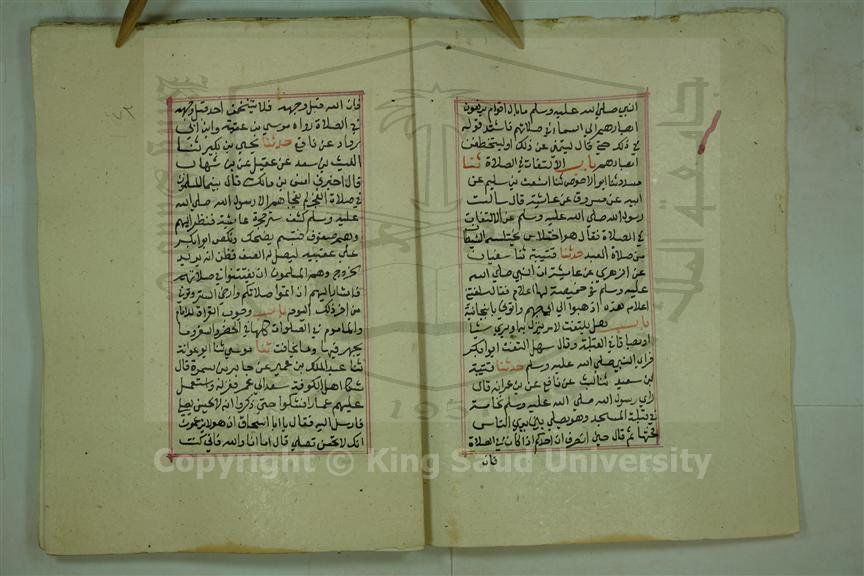 النبي صلى الله عليه وسلم ما بال اقوام يرفعون
ابصارهم الى السماء في صلاتهم فاشتد قوله
في ذلك حتى قال لينتهن عن ذلك او لتخطفن
ابصارهم باب الالتفات في الصلاة ثنا
مسدد ثنا ابو الاحوص ثنا اشعث بن سليم عن
ابيه عن مسروق عن عائشة قال سالت
رسول الله صلى الله عليه وسلم عن الالتفات
في الصلاة فقال هو اختلاس يختلسه الشيطان
من صلاة العبد حدثنا قتيبة ثنا سفيان
عن الزهري عن عائشة ان النبي صلى الله
عليه وسلم في خميصة لها اعلام فقال شغلني
اعلام هذه اذهبوا الى ابي جهم واتوني بانبجانية
باب هل يلتفت لامر ينزل به او يرى شيأ
او بصاقا في القبلة وقال سهل التفت ابو بكر
فراى النبي صلى الله عليه وسلم حدثنا قتيبة
بن سعيد ثنا ليث عن نافع عن بن عمر انه قال
راى رسول الله صلى الله عليه وسلم نخامة
في قبلة المسجد وهو يصلي بين يدي الناس
فحتها ثم قال حين انصرف ان احدكم اذا كان في الصلاة
فان
فان الله قبل وجهه فلا يتنخمن احد قبل وجهه
في الصلاة رواه موسى بن عقبة وابن ابي
رواد عن نافع حدثنا يحيى بن بكير ثنا
الليث بن سعد عن عقيل عن بن شهاب
قال اخبرني انس بن مالك قال بينما المسلمون
في صلاة الفجر لم يفجاهم الا رسول الله صلى الله
عليه وسلم كشف ستر حجرة عائشة فنظر اليهم
وهم صفوف فتبسم يضحك ونكص ابو بكر
على عقبيه ليصل له الصف فظن انه يريد
الخروج وهم المسلمون ان يفتتنوا في صلاتهم
فاشار اليهم ان اتموا صلاتكم وارخى الستر وتوفي
من اخر ذلك اليوم باب وجوب القراة للامام
والماموم في الصلوات كلها في الحضر والسفر وما
يجهر فيها وما يخافت ثنا موسى ثنا ابو عوانة
ثنا عبد الملك بن عمير عن جابر بن سمرة قال
شكا اهل الكوفة سعدا الى عمر فعزله واستعمل
عليهم عمارا فشكوا حتى ذكروا انه لا يحسن يصلي
فارسل اليه فقال يا ابا اسحاق ان هولاء يزعمون
انك لا تحسن تصلي قال اما انا والله فاني كنت
جامعة الملك سعود
195
Copyright © King Saud University